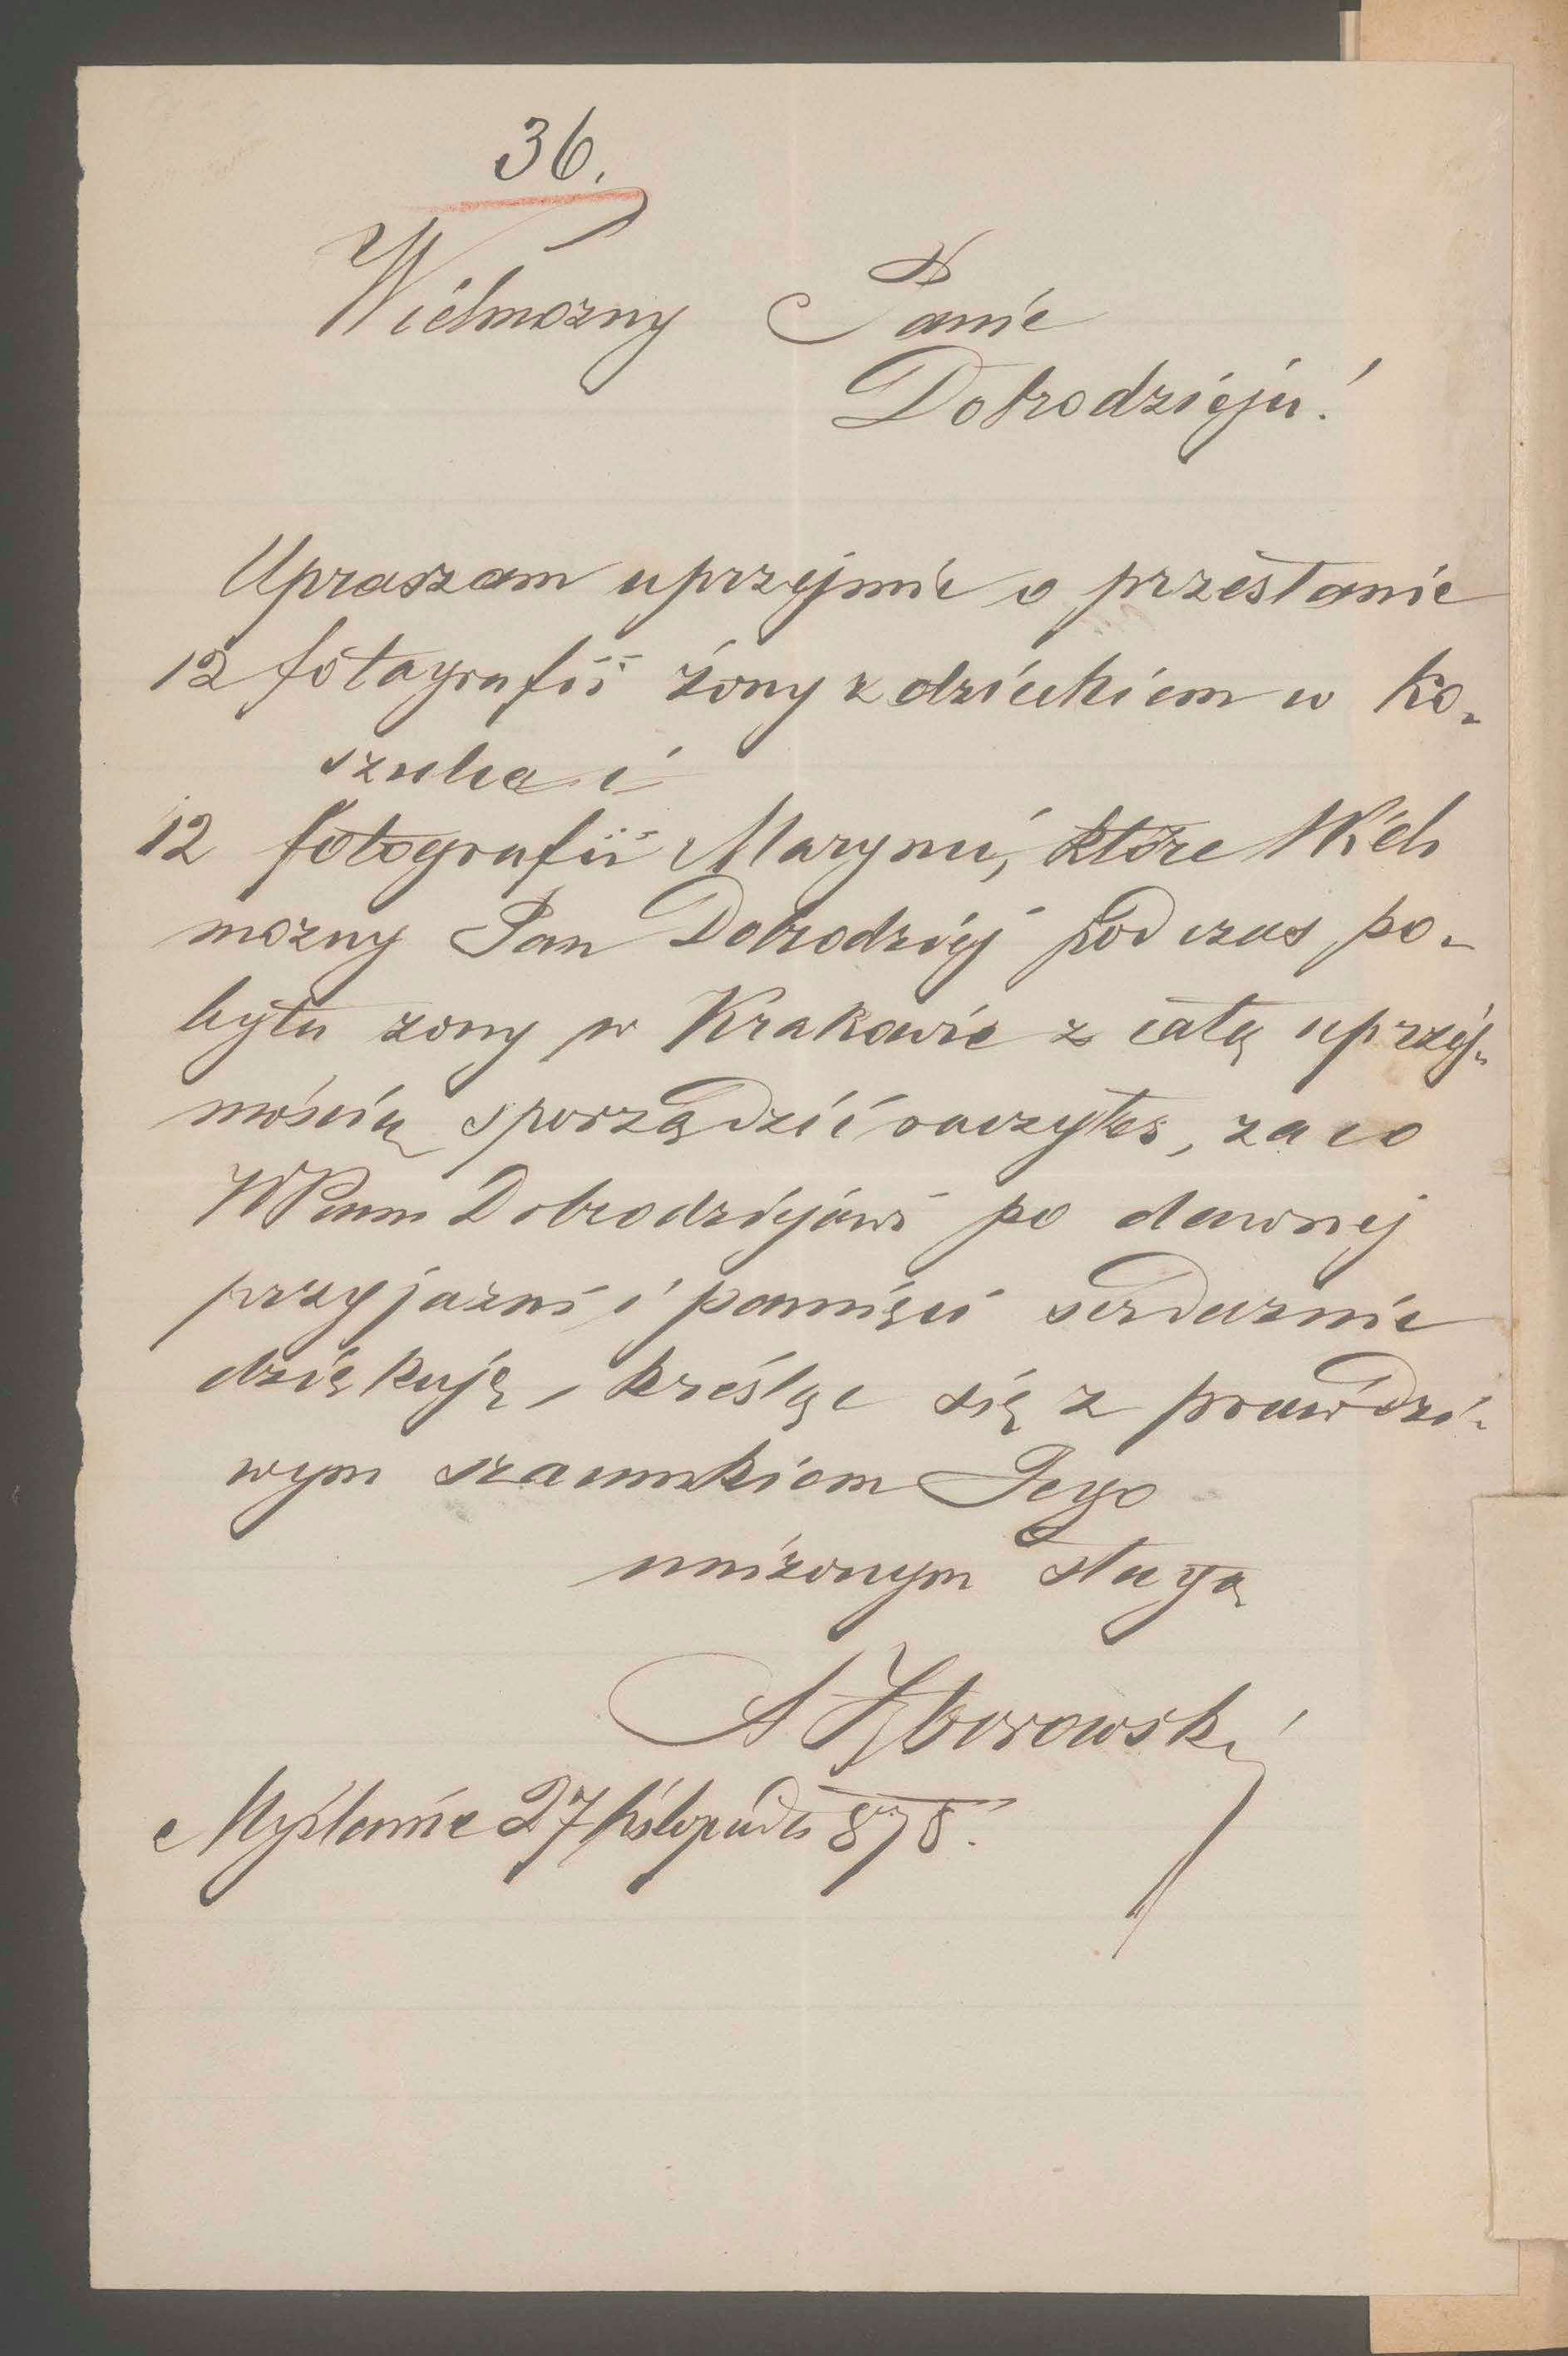 36.
Wielmozny Panie
Dobrodzieju!
Upraszam uprzejmie o przesłanie
12 fotografii żony z dzieckiem w ko-
szulce i
12 fotografii Maryni, które Wiel
mozny Pan Dobrodziej podczas po-
bytu zony w Krakowie z całą uprzej-
mością sporządzić raczyłeś, za co
WPanu Dobrodziejowi po dawnej
przyjazni i pamięci serdecznie
dziękuję, kreśląc się z prawdzi-
wym szacunkiem Jego
unizonym sługą
A Zborowski
Myślenice 27 listopada 878.